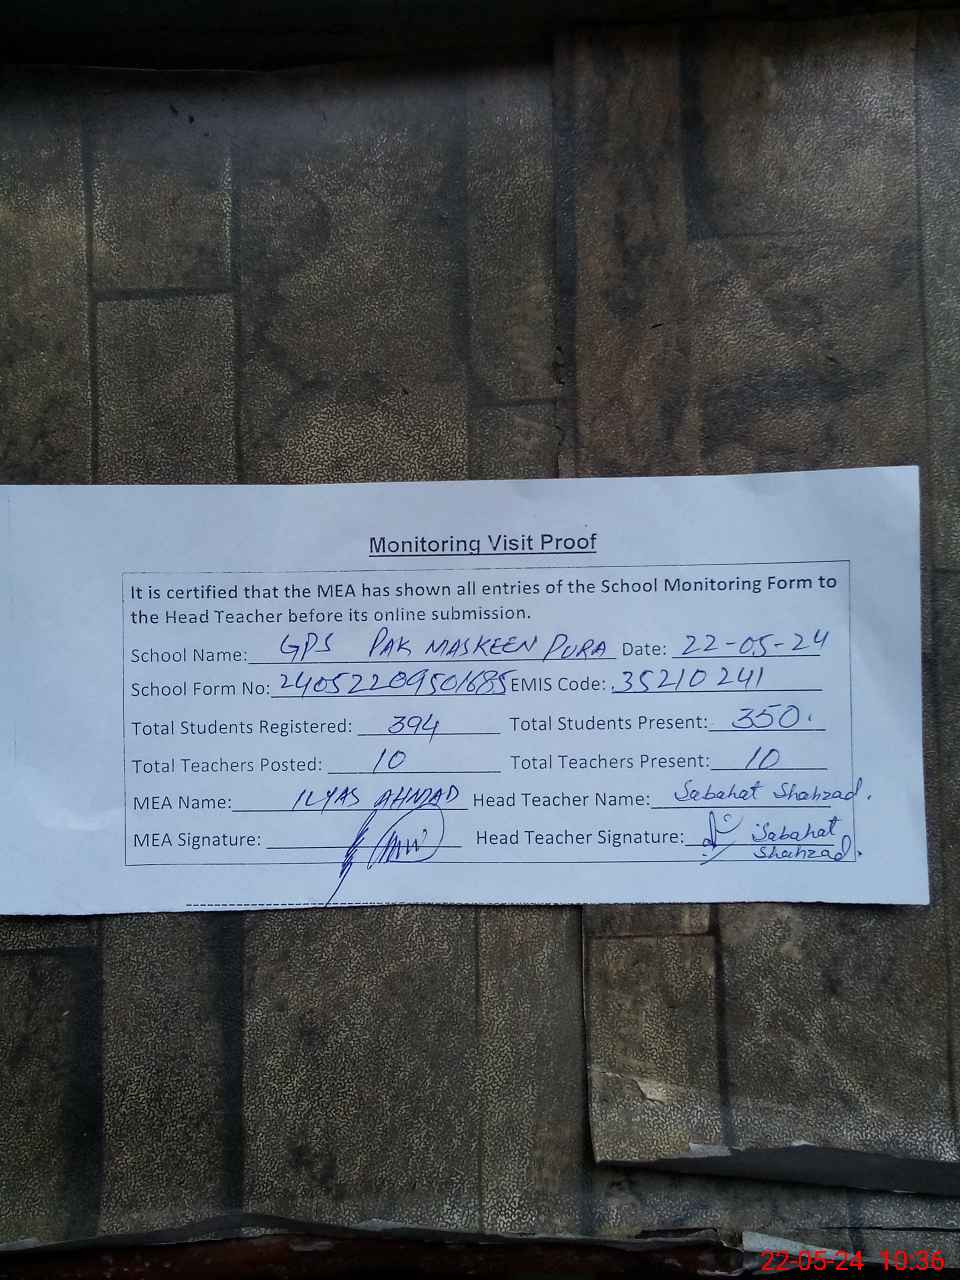 Monitoring Visit Proof
It is certified that the MEA has shown all entries of the School Monitoring Form to
the Head Teacher before its online submission.
School Name: GPS PAK MASKEEN PURA Date: 22-05-24
School Form No: 24052209501685 EMIS Code: 35210241
Total Students Registered: 394 Total Students Present: 350.
Total Teachers Posted: 10 Total Teachers Present: 10
MEA Name: ILYAS AHMAD Head Teacher Name: Sabahat Shahzad.
MEA Signature: Head Teacher Signature: Sabahat
Shahzad.
22-05-24 10:36